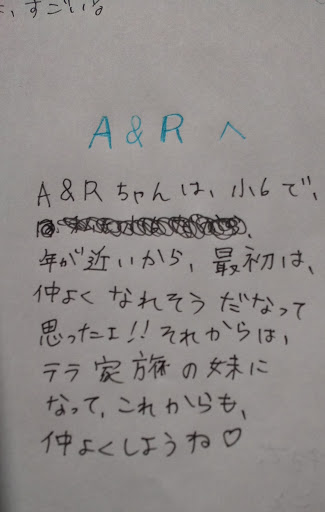 すごいる
A&R へ
A&Rちゃんは、小6で、
年が近いから、最初は、
仲よくなれそうだなって
思ったエ!!それからは、
テラ家族の妹に
なって、これからも、
仲よくしようね♡